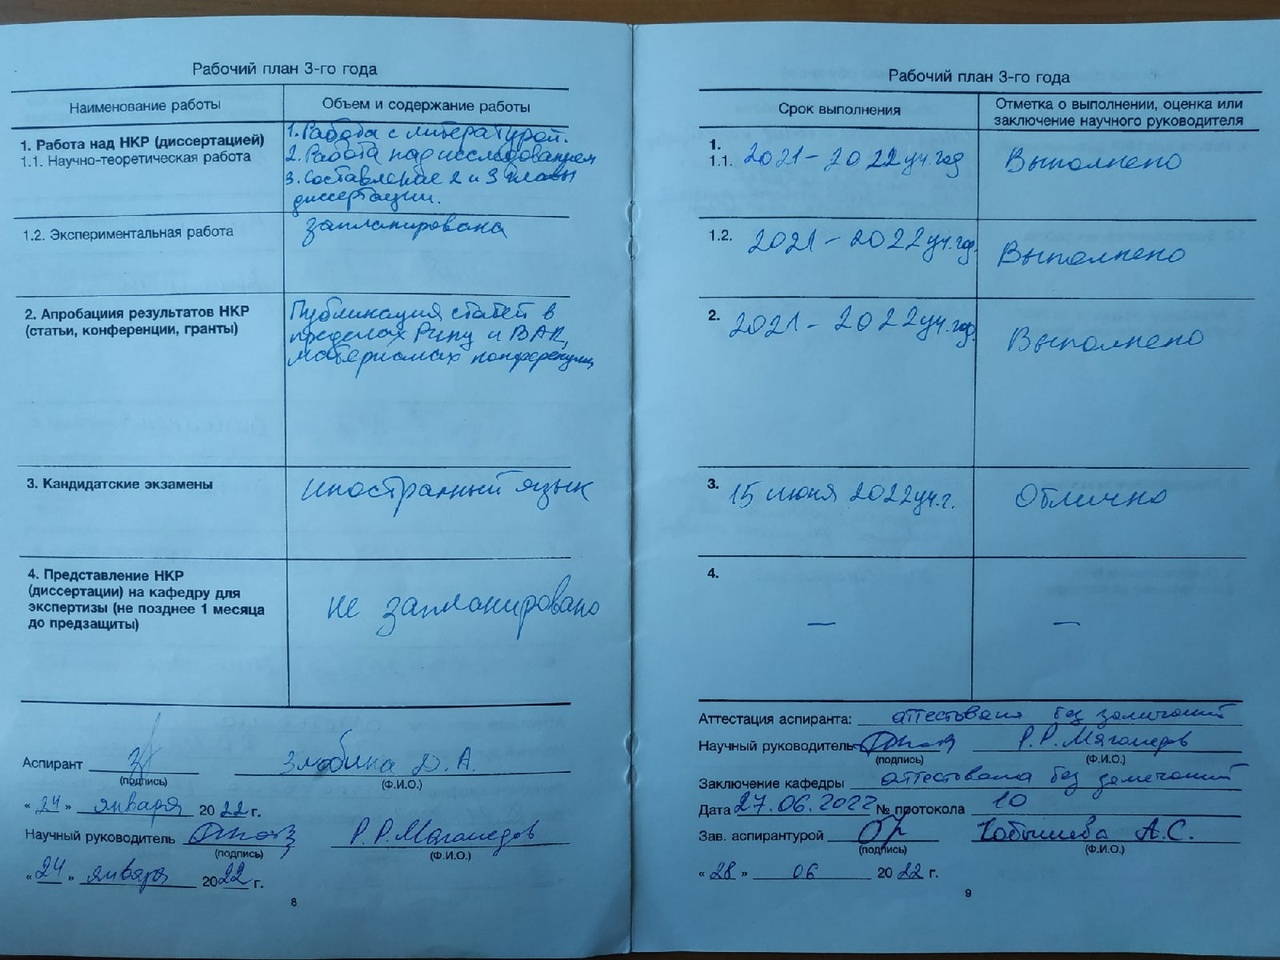 Рабочий план 3-го года
Наименование работы
Объем и содержание работы
1. Работа над НКР (диссертацией)
1.1. Научно-теоретическая работа
1. Работа с литературой.
2. Работа над исследованием
3. Составление 2 и 3 главы
диссертации.
1.2. Экспериментальная работа
запланирована
2. Апробациия результатов НКР
(статьи, конференции, гранты)
Публикация статей в
пределах Ринц и ВАК,
материалах конференции
3. Кандидатские экзамены
иностранный язык
4. Представление НКР
(диссертации) на кафедру для
экспертизы (не позднее 1 месяца
до предзащиты)
не запланировано
Аспирант Злобина Д. А.
(подпись) (Ф.И.О.)
« 24 » января 20 22 г.
Научный руководитель Р.Р. Магомедов
(подпись) (Ф.И.О.)
« 24 » января 20 22 г.
8
Рабочий план 3-го года
Срок выполнения
Отметка о выполнении, оценка или
заключение научного руководителя
1.
1.1. 2021 – 2022 уч. год
Выполнено
1.2. 2021 – 2022 уч. год.
Выполнено
2. 2021 – 2022 уч. год.
Выполнено
3. 15 июня 2022 уч. г.
Отлично
4.
— —
Аттестация аспиранта: аттестована без замечаний
Научный руководитель Р.Р. Магомедов
(подпись) (Ф.И.О.)
Заключение кафедры аттестована без замечаний
Дата 27.06.2022 № протокола 10
Зав. аспирантурой А.С.
(подпись) (Ф.И.О.)
« 28 » 06 20 22 г.
9